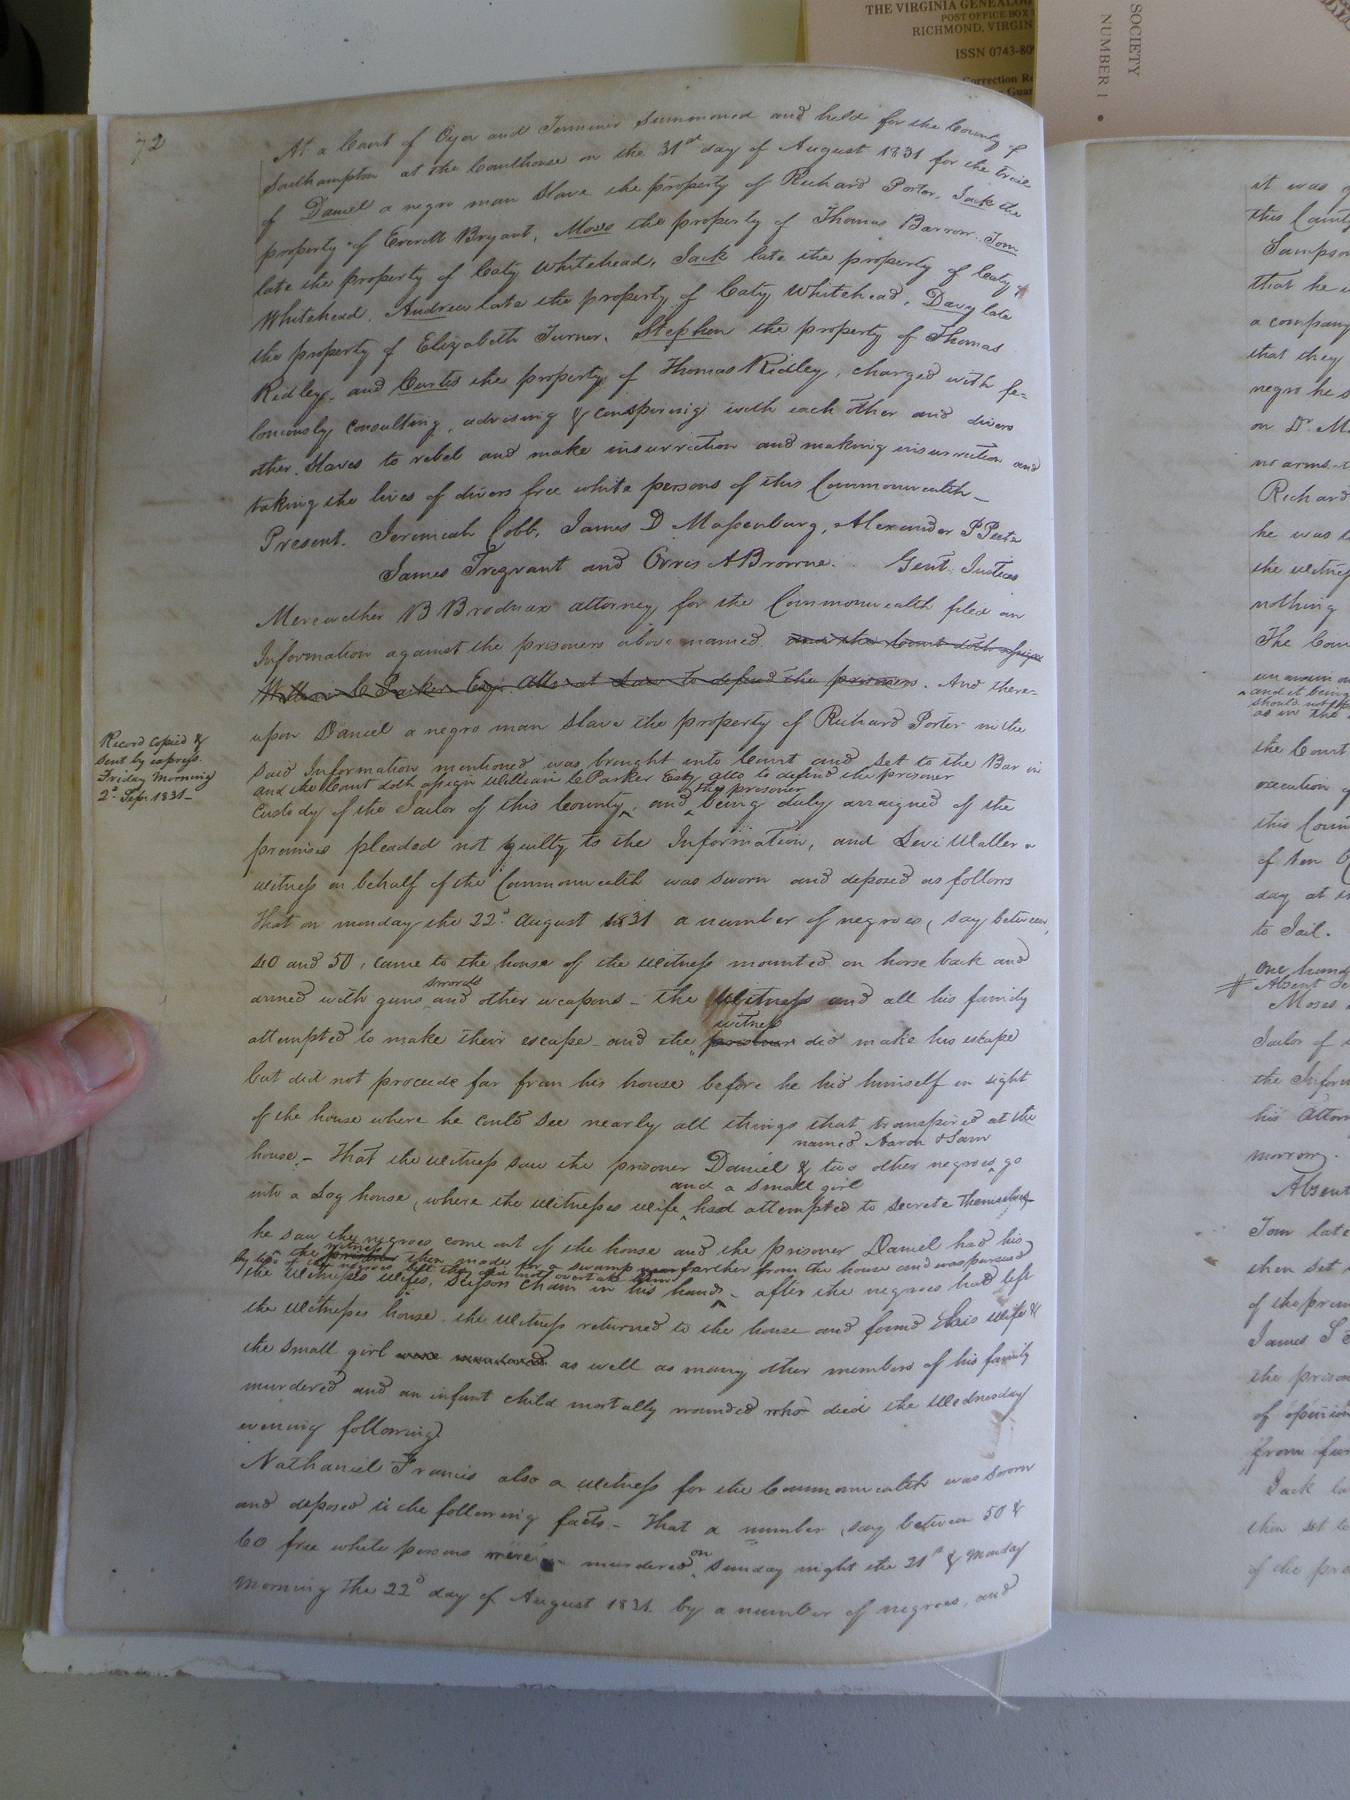 THE VIRGINIA GENEALOG
POST OFFICE BOX
RICHMOND, VIRGIN
ISSN 0743-809
Correction Re
- Guar
SOCIETY
NUMBER 1
72
At a Court of Oyer and Terminer summoned and held for the County of
Southampton at the Courthouse on the 31st day of August 1831 for the trial
of Daniel a negro man slave the property of Richard Porter, Jack the
property of Everett Bryant, Moses the property of Thomas Barrow. Tom
late the property of Caty Whitehead, Jack late the property of Caty
Whitehead, Andrew late the property of Caty Whitehead, Davy late
the property of Elizabeth Turner, Stephen the property of Thomas
Ridley, and Curtis the property of Thomas Ridley, charged with fe=
loniously consulting, advising & conspiring with each other and divers
other slaves to rebel and make insurrection and making insurrection and
taking the lives of divers free white persons of this Commonwealth_
Present. Jeremiah Cobb, James D Massenburg, Alexander P Peete
James Trezvant and Orris A Browne. Gent. Justices
Meriwether B Brodnax attorney for the Commonwealth filed an
Information against the prisoners above named. and the Court doth assign
William C Parker Esqr. Atto at Law to defend the prisoners. And there=
upon Daniel a negro man slave the property of Richard Porter in the
said Information mentioned was brought into Court and set to the Bar in
and the Court doth assign William C Parker Esq. atto to defend the prisoner
the prisoner
custody of the Jailor of this County, and being duly arraigned of the
premises pleaded not guilty to the Information, and Levi Waller a
witness on behalf of the Commonwealth was sworn and deposed as follows
That on monday the 22d. August 1831 a number of negroes, (say between
40 and 50, came to the house of the witness mounted on horse back and
swords
armed with guns and other weapons - the witness and all his family
witness
attempted to make their escape - and the prisoner did make his escape
but did not proceede far from his house before he hid himself in sight
of the house where he could see nearly all things that transpired at the
named Aaron & Sam
house - That the witness saw the prisoner Daniel & two other negroes go
and a small girl
into a Log house, where the witnesses wife had attempted to secrete themselves
he saw the negroes come out of the house and the prisoner Daniel had his
the witness prisoner then made for a swamp farther from the house and was pursued
by two of the negroes but they did not overtake him
the witness's wifes, scissors chain in his hand - after the negroes had left
the witnesses house the witness returned to the house and found his wife &
the small girl were murdered as well as many other members of his family
murdered and an infant child mortally wounded who died the Wednesday
evening following
Nathaniel Francis also a witness for the Commonwealth was sworn
and deposed to the following facts - That a number, say between 50 &
60 free white persons were murdered on sunday night the 21st & Monday
morning the 22d day of August 1831 by a number of negroes, and
Record copied &
sent by express
Friday morning
2d Sep. 1831_
it was
this County
Sampson
that he
a company
that they
negro he s
on Dr. M
no arms
Richard
he was
the witness
nothing
The Cour
and it being
should not
as in the
the Court
execution
this Coun
of ten
day at
to Jail.
one hund
# Absent
Moses
Jailor of
the Inform
his Attor
morrow.
Absent
Tom late
then set
of the prem
James S
the prison
of opinion
from fur
Jack la
then set to
of the pre